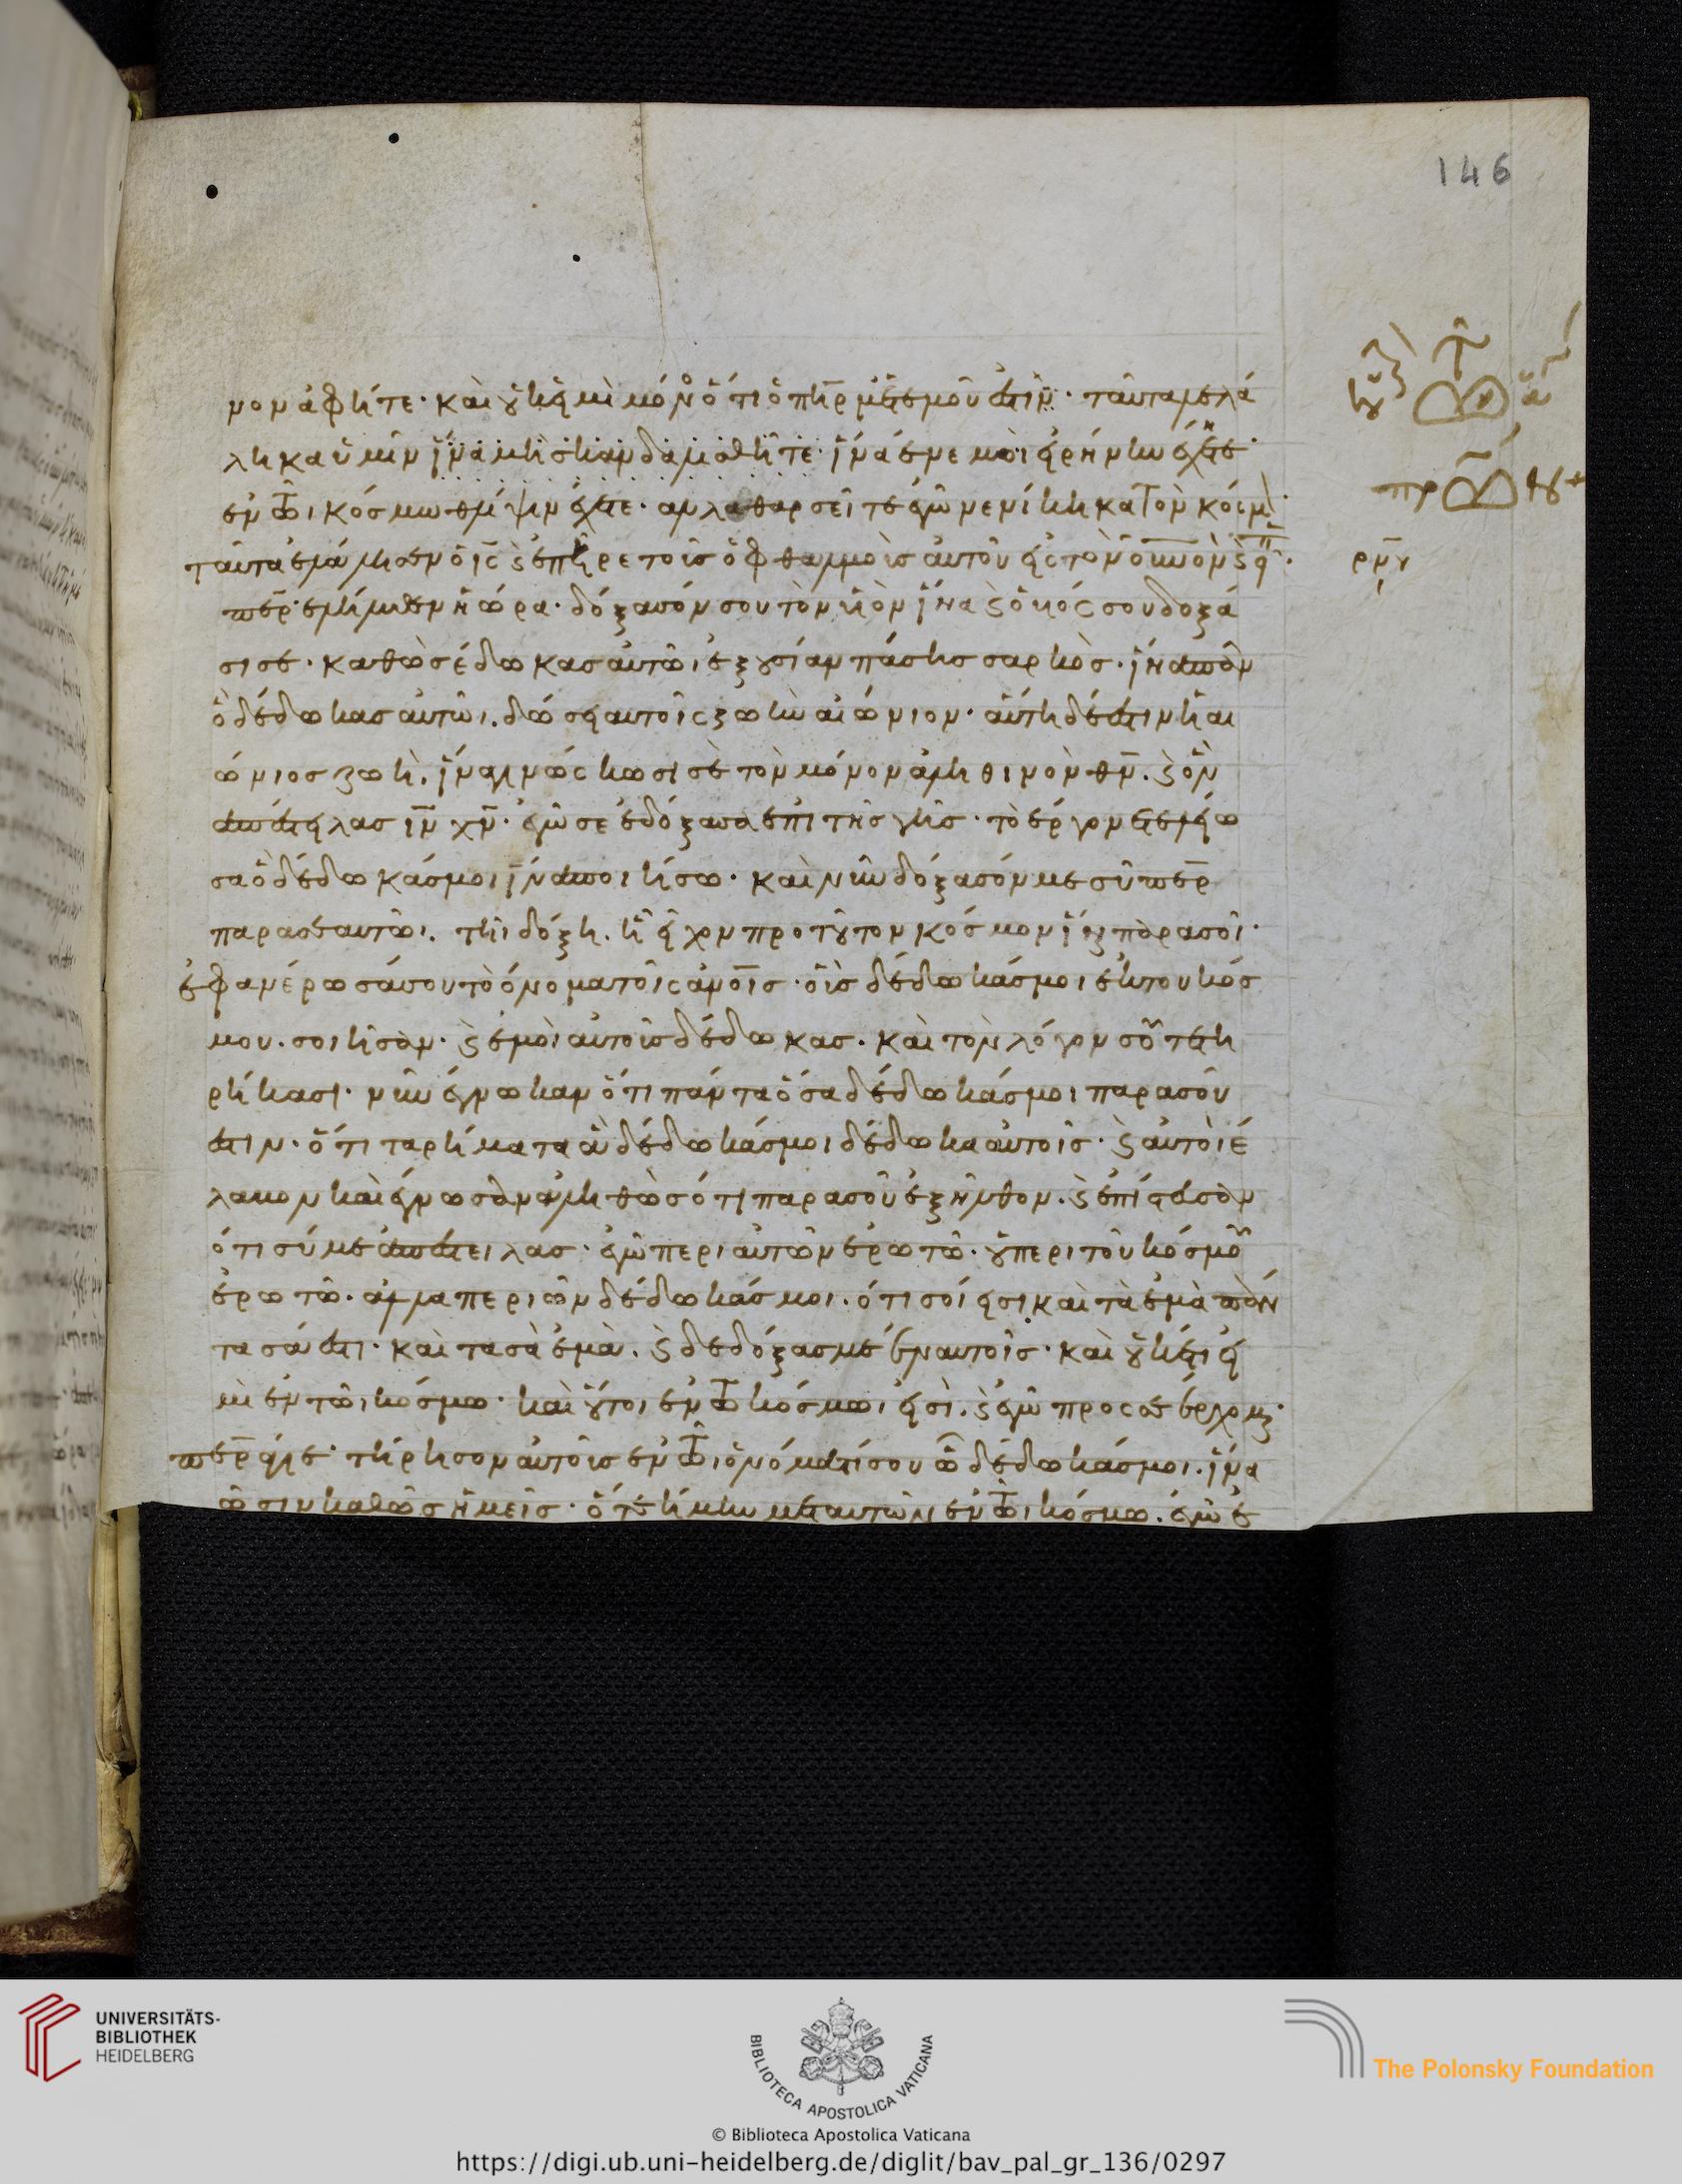 146
νον ἀφῆτε· καὶ οὐκ εἰμὶ μόνος ὅτι ὁ πηρ μετ ἐμοῦ ἐστιν· ταῦτα λελά
ληκα ὑμῖν ἵνα μὴ σκανδαλισθῆτε· ἵνα ἐν ἐμοὶ εἰρήνην ἔχητε·
ἐν τῶι κόσμω θλίψιν ἔχετε· ἀλλα θαρσεῖτε ἐγὼ νενίκηκα τὸν κόσμ
ταῦτα ἐλάλησεν ὁ ις καὶ ἐπῆρε τοὺς ὀφθαλμοὺς αὐτοῦ εἰς τὸν ουνον καὶ εἶπ·
περ ἐλήλυθεν ἡ ὥρα· δόξασόν σου τὸν υἱὸν ἵνα καὶ ὁ υἱός σου δοξά
σι σε· καθὼς ἔδωκας αὐτῶι ἐξουσίαν πάσης σαρκὸς· ἵνα πᾶν
ὃ δέδωκας αὐτῶι. δώσει αὐτοῖς ζωὴν αἰώνιον· αὕτη δέ ἐστιν ἡ αι
ώνιος ζωή. ἵνα γινώσκωσι σὲ τὸν μόνον ἀληθινὸν θν. καὶ ὃν
ἀπέστειλας ιν χν· ἐγώ σε ἐδόξασα ἐπὶ τῆς γῆς· τὸ ἔργον ἐτελείω
σα ὃ δέδωκάς μοι ἵνα ποιήσω· καὶ νῦν δόξασόν με σὺ περ
παρα σεαυτῶι. τῆι δόξη. ἧ εἶχον προ τοῦ τον κόσμον εἶναι παρα σοί·
ἐφανέρωσά σου τὸ ὄνομα τοῖς ἀνοις· οὓς δέδωκάς μοι ἐκ του κόσ
μου. σοι ἦσαν· καὶ ἐμοὶ αὐτοὺς δέδωκας· καὶ τὸν λόγον σοῦ τετη
ρήκασι· νῦν ἔγνωκαν ὅτι πάντα ὅσα δέδωκάς μοι παρα σοῦ
ἐστιν· ὅτι τα ρήματα ἃ δέδωκάς μοι δέδωκα αὐτοῖς· καὶ αὐτοὶ έ
λαβον καὶ ἔγνωσαν ἀληθῶς ὅτι παρα σοῦ ἐξῆλθον. καὶ ἐπίστευσαν
ὅτι σύ με ἀπέστειλας· ἐγὼ περι αὐτῶν ἐρωτῶ· οὐ περι τοῦ κόσμου
ἐρωτῶ· ἀλλα περι ὧν δέδωκάς μοι. ὅτι σοί εἰσι καὶ τὰ ἐμὰ πάν
τα σά ἐστι· καὶ τα σὰ ἐμὰ. καὶ δεδόξασμαι ἐν αυτοῖς· καὶ οὐκ έτι εἰ
μὶ ἐν τῶι κόσμω· καὶ οὗτοι ἐν τῶ κόσμωι εἰσὶ. καὶ ἐγὼ προς σε ἔρχομαι·
περ ἅγιε· τήρησον αὐτοὺς ἐν τῶι ὀνόματί σου ᾧ δέδωκάς μοι. ἵνα
ὦσιν καθὼς ἡμεῖς· ὅτε ἤμην μετ αυτῶν ἐν τῶι κόσμω. ἐγὼ ἐ
ρμγ
UNIVERSITÄTS-
BIBLIOTHEK
HEIDELBERG
BIBLIOTECA APOSTOLICA VATICANA
The Polonsky Foundation
© Biblioteca Apostolica Vaticana
https://digi.ub.uni-heidelberg.de/diglit/bav_pal_gr_136/0297